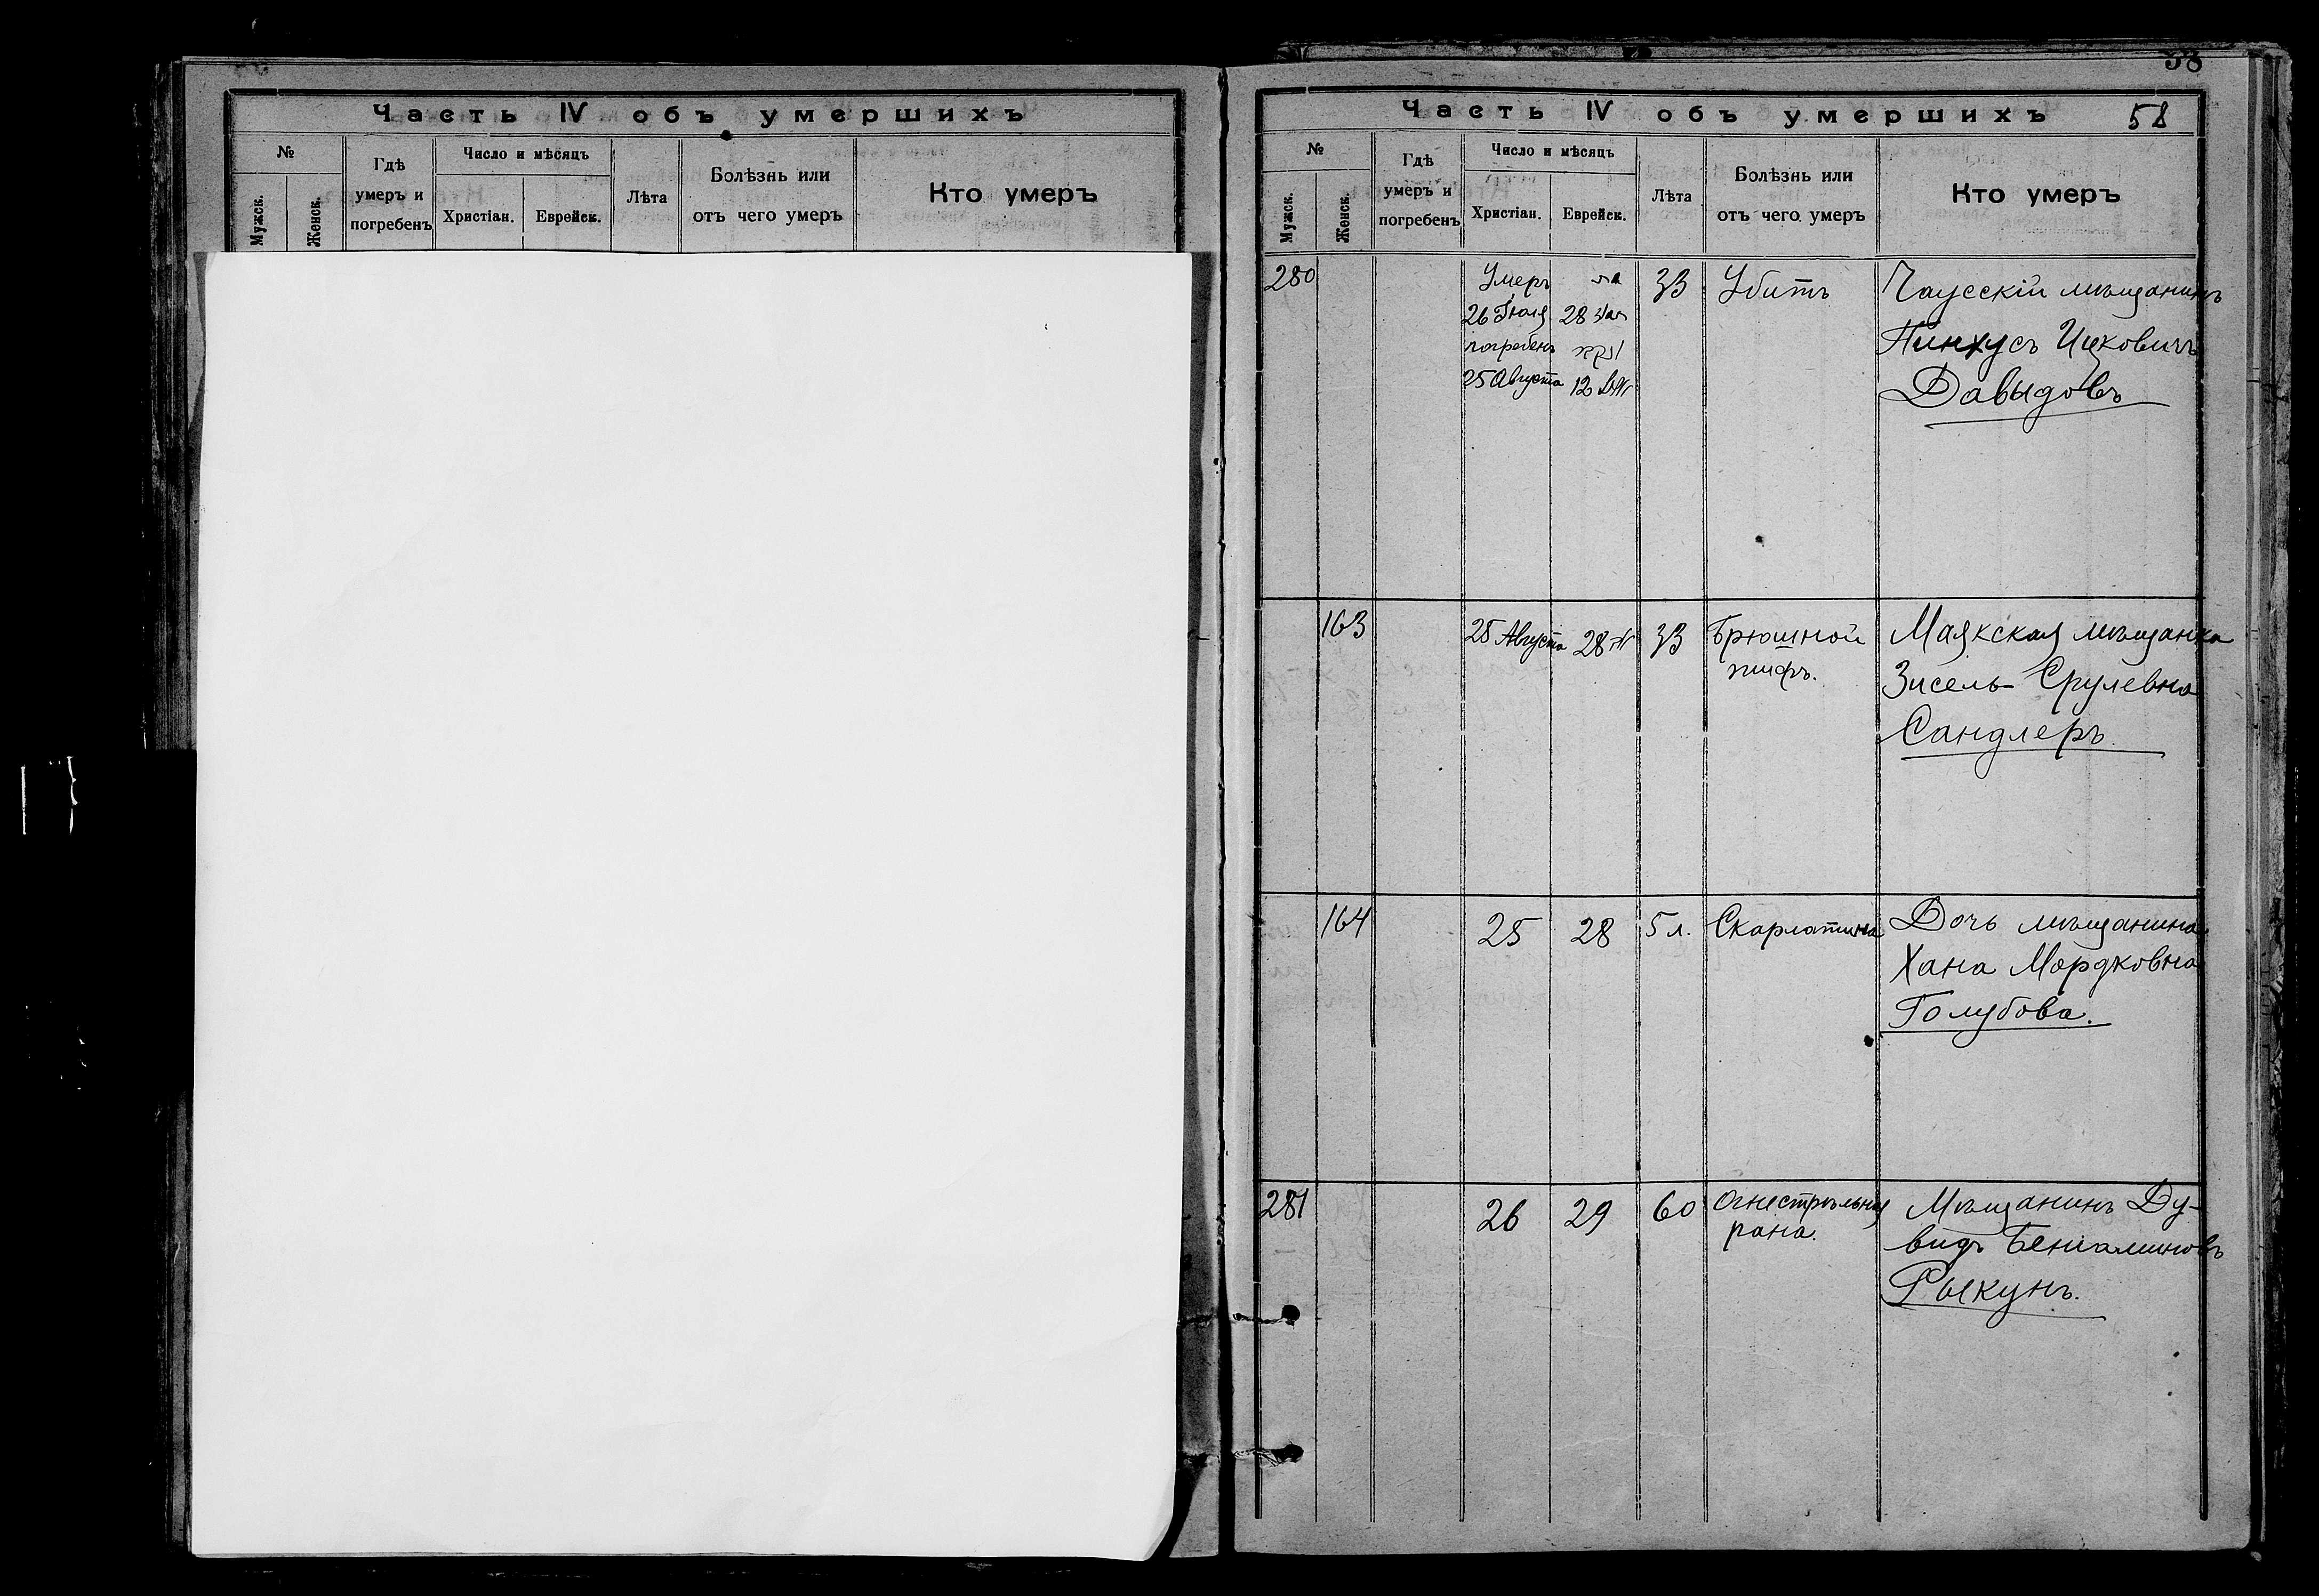 Часть IV объ умершихъ
№
Мужск.
Женск.
Гдѣ
умеръ и
погребенъ
Число и мѣсяцъ
Христіан.
Еврейск.
Лѣта
Болѣзнь или
отъ чего умеръ
Кто умеръ
38
Часть IV объ умершихъ
58
№
Мужск.
Женск.
Гдѣ
умеръ и
погребенъ
Число и мѣсяцъ
Христіан.
Еврейск.
Лѣта
Болѣзнь или
отъ чего умеръ
Кто умеръ
280
Умеръ
26 Іюля
погребенъ
25 Августа
מת
28
נקבר
12
33
Убитъ
Чаусскій мѣщанинъ
Пинхусъ Ицковичъ
Давыдовъ
163
25 Августа
28
33
Брюшной
тифъ.
Маякская мѣщанка
Зисель Срулевна
Сандлеръ
164
25
28
5 л.
Скарлатина
Дочь мѣщанина
Хана Мордковна
Голубова.
281
26
29
60
Огнестрѣльная
рана.
Мѣщанинъ Ду-
видъ Беніаминовъ
Рыкунъ.